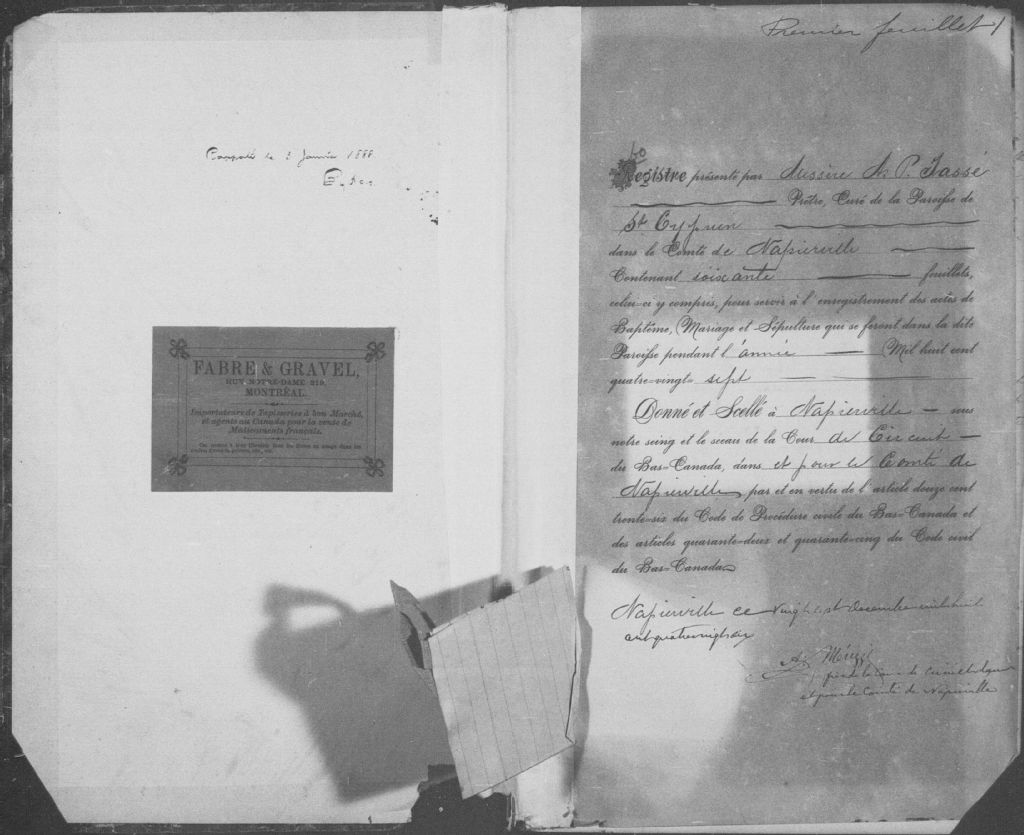 le 3 Janvier 1888
FABRE & GRAVEL,
RUE NOTRE-DAME 219,
MONTRÉAL.
Importateurs de Tapisseries à bon Marché,
et agents au Canada pour la vente de
Médicaments français.
Premier feuillet 1
60
Registre présenté par Messire A. P. Tassé
Prêtre, Curé de la Paroisse de
St Cyprien
dans le Comté de Napierville
Contenant soixante feuillets,
celui-ci y compris, pour servir à l'enregistrement des actes de
Baptême, Mariage et Sépulture qui se feront dans la dite
Paroisse pendant l'année Mil huit cent
quatre-vingt sept
Donné et Scellé à Napierville sous
notre seing et le sceau de la Cour de Circuit
du Bas-Canada, dans et pour le Comté de
Napierville par et en vertu de l'article douze cent
trente-six du Code de Procédure civile du Bas-Canada et
des articles quarante-deux et quarante-cinq du Code civil
du Bas-Canada.
Napierville ce vingt sept Décembre mil huit
cent quatrevingt six
et pour le Comté de Napierville